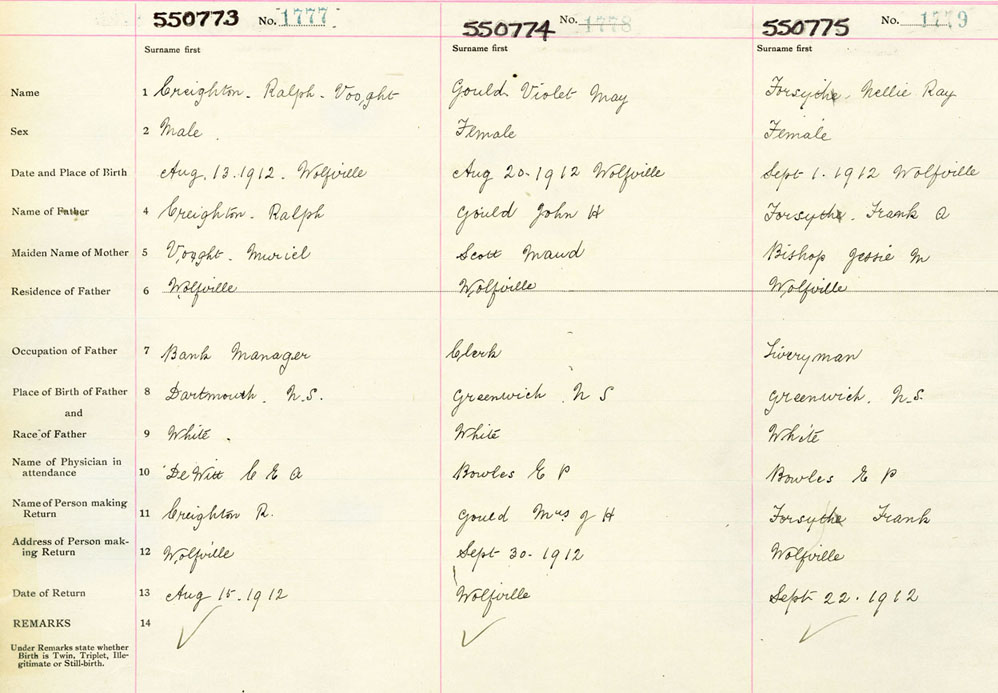 550773 No. 1777 550774 No. 1778 550775 No. 1779
Surname first Surname first Surname first
Name 1 Creighton. Ralph. Vooght Gould Violet May Forsythe. Nellie Ray
Sex 2 Male. Female Female
Date and Place of Birth Aug. 13. 1912. Wolfville Aug 20-1912 Wolfville Sept 1. 1912 Wolfville
Name of Father 4 Creighton. Ralph Gould John H Forsythe. Frank A
Maiden Name of Mother 5 Vooght. Muriel Scott Maud Bishop Jessie M
Residence of Father 6 Wolfville Wolfville Wolfville
Occupation of Father 7 Bank Manager Clerk Liveryman
Place of Birth of Father 8 Dartmouth. N.S. Greenwich. N S Greenwich. N.S.
and
Race of Father 9 White. White White
Name of Physician in
attendance 10 DeWitt C E A Bowles E P Bowles E P
Name of Person making
Return 11 Creighton R. Gould Mrs J H Forsythe Frank
Address of Person mak-
ing Return 12 Wolfville Sept 30-1912 Wolfville
Date of Return 13 Aug 15-1912 Wolfville Sept 22. 1912
REMARKS 14
Under Remarks state whether
Birth is Twin, Triplet, Ille-
gitimate or Still-birth.